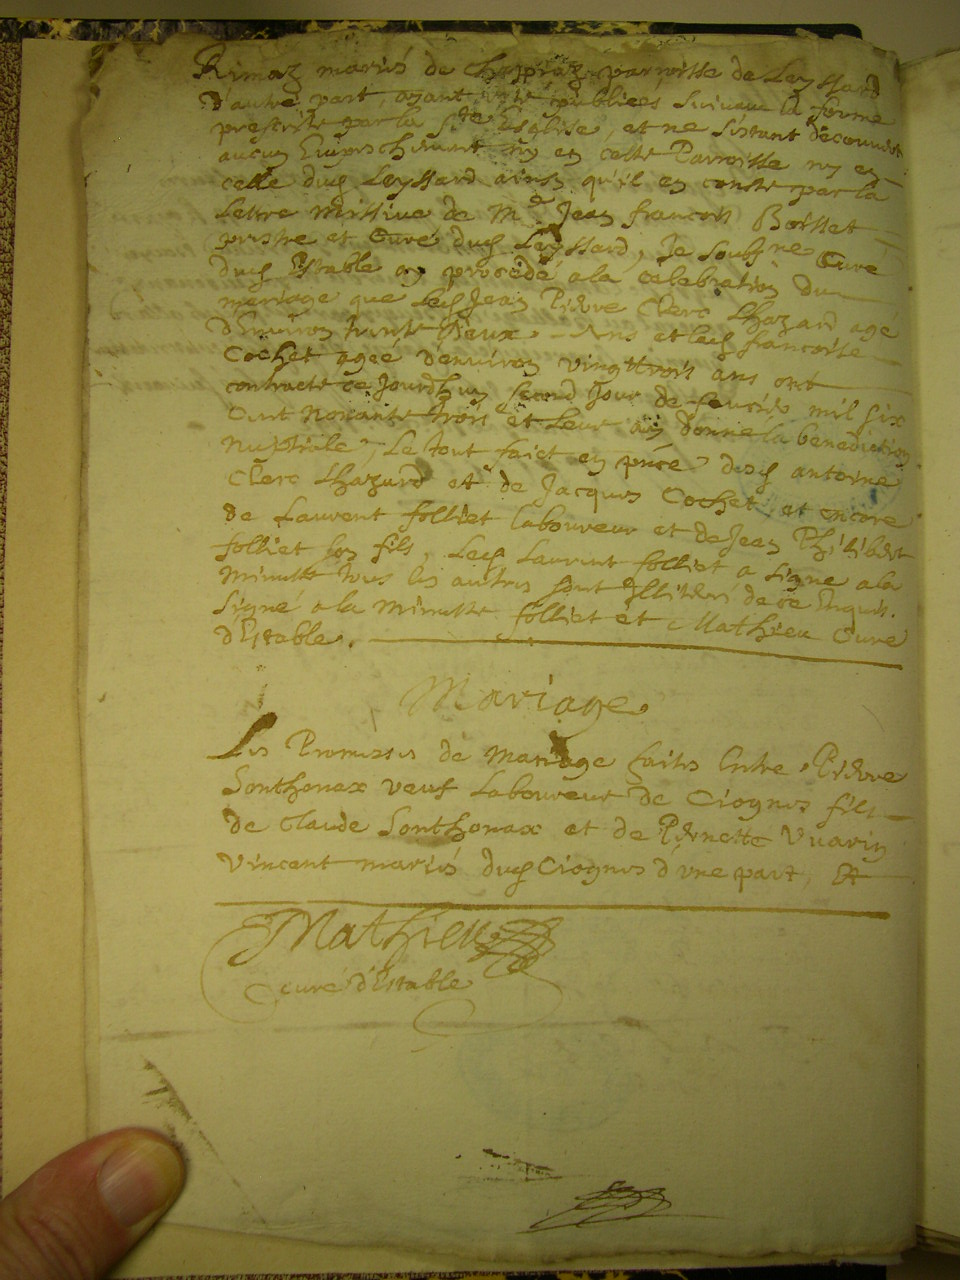 Rimaz mariés de Chepiaz parroisse de Leyssard
d'autre part, ayant esté publiées suivant la forme
prescrite par la Ste Esglise, et ne s'estant découvert
aucun Empeschement ny en cette Parroisse ny en
celle dud Leyssard ainsy qu'il en conste par la
Lettre Missive de Me Jean francois Boisset
prestre et Curé dud Leyssard, Je soubsné Curé
dud Estable ay procedé a la celebration du
mariage que led Jean Pierre Clerc Lhazard agé
d'Environ trente deux Ans et lad francoise
Cochet ageé d'environ vingttrois ans ont
contracté ce Jourdhuy second Jour de feuvrier mil six
Cent Nonante trois et leur ay donné la benediction
Nuptiale, Le tout faict en pnce desd antoine
Clerc Lhazard et de Jacques Cochet et encore
de Laurent folliet laboureur et de Jean Philibert
folliet son fils, Led Laurent folliet a signé a la
Minutte tous les autres sont Illiteré de ce Enquis.
Signé a la Minutte folliet et Mathieu Curé
d'Estable.
Mariage
Les Promesses de Mariage faites Entre Pierre
Sonthonax veuf Laboureur de Ciognes fils
de Claude Sonthonax et de Pernette Vuarin
Vincent mariés dud Ciognes d'vne part, Et
Mathieu
curé d'Estable